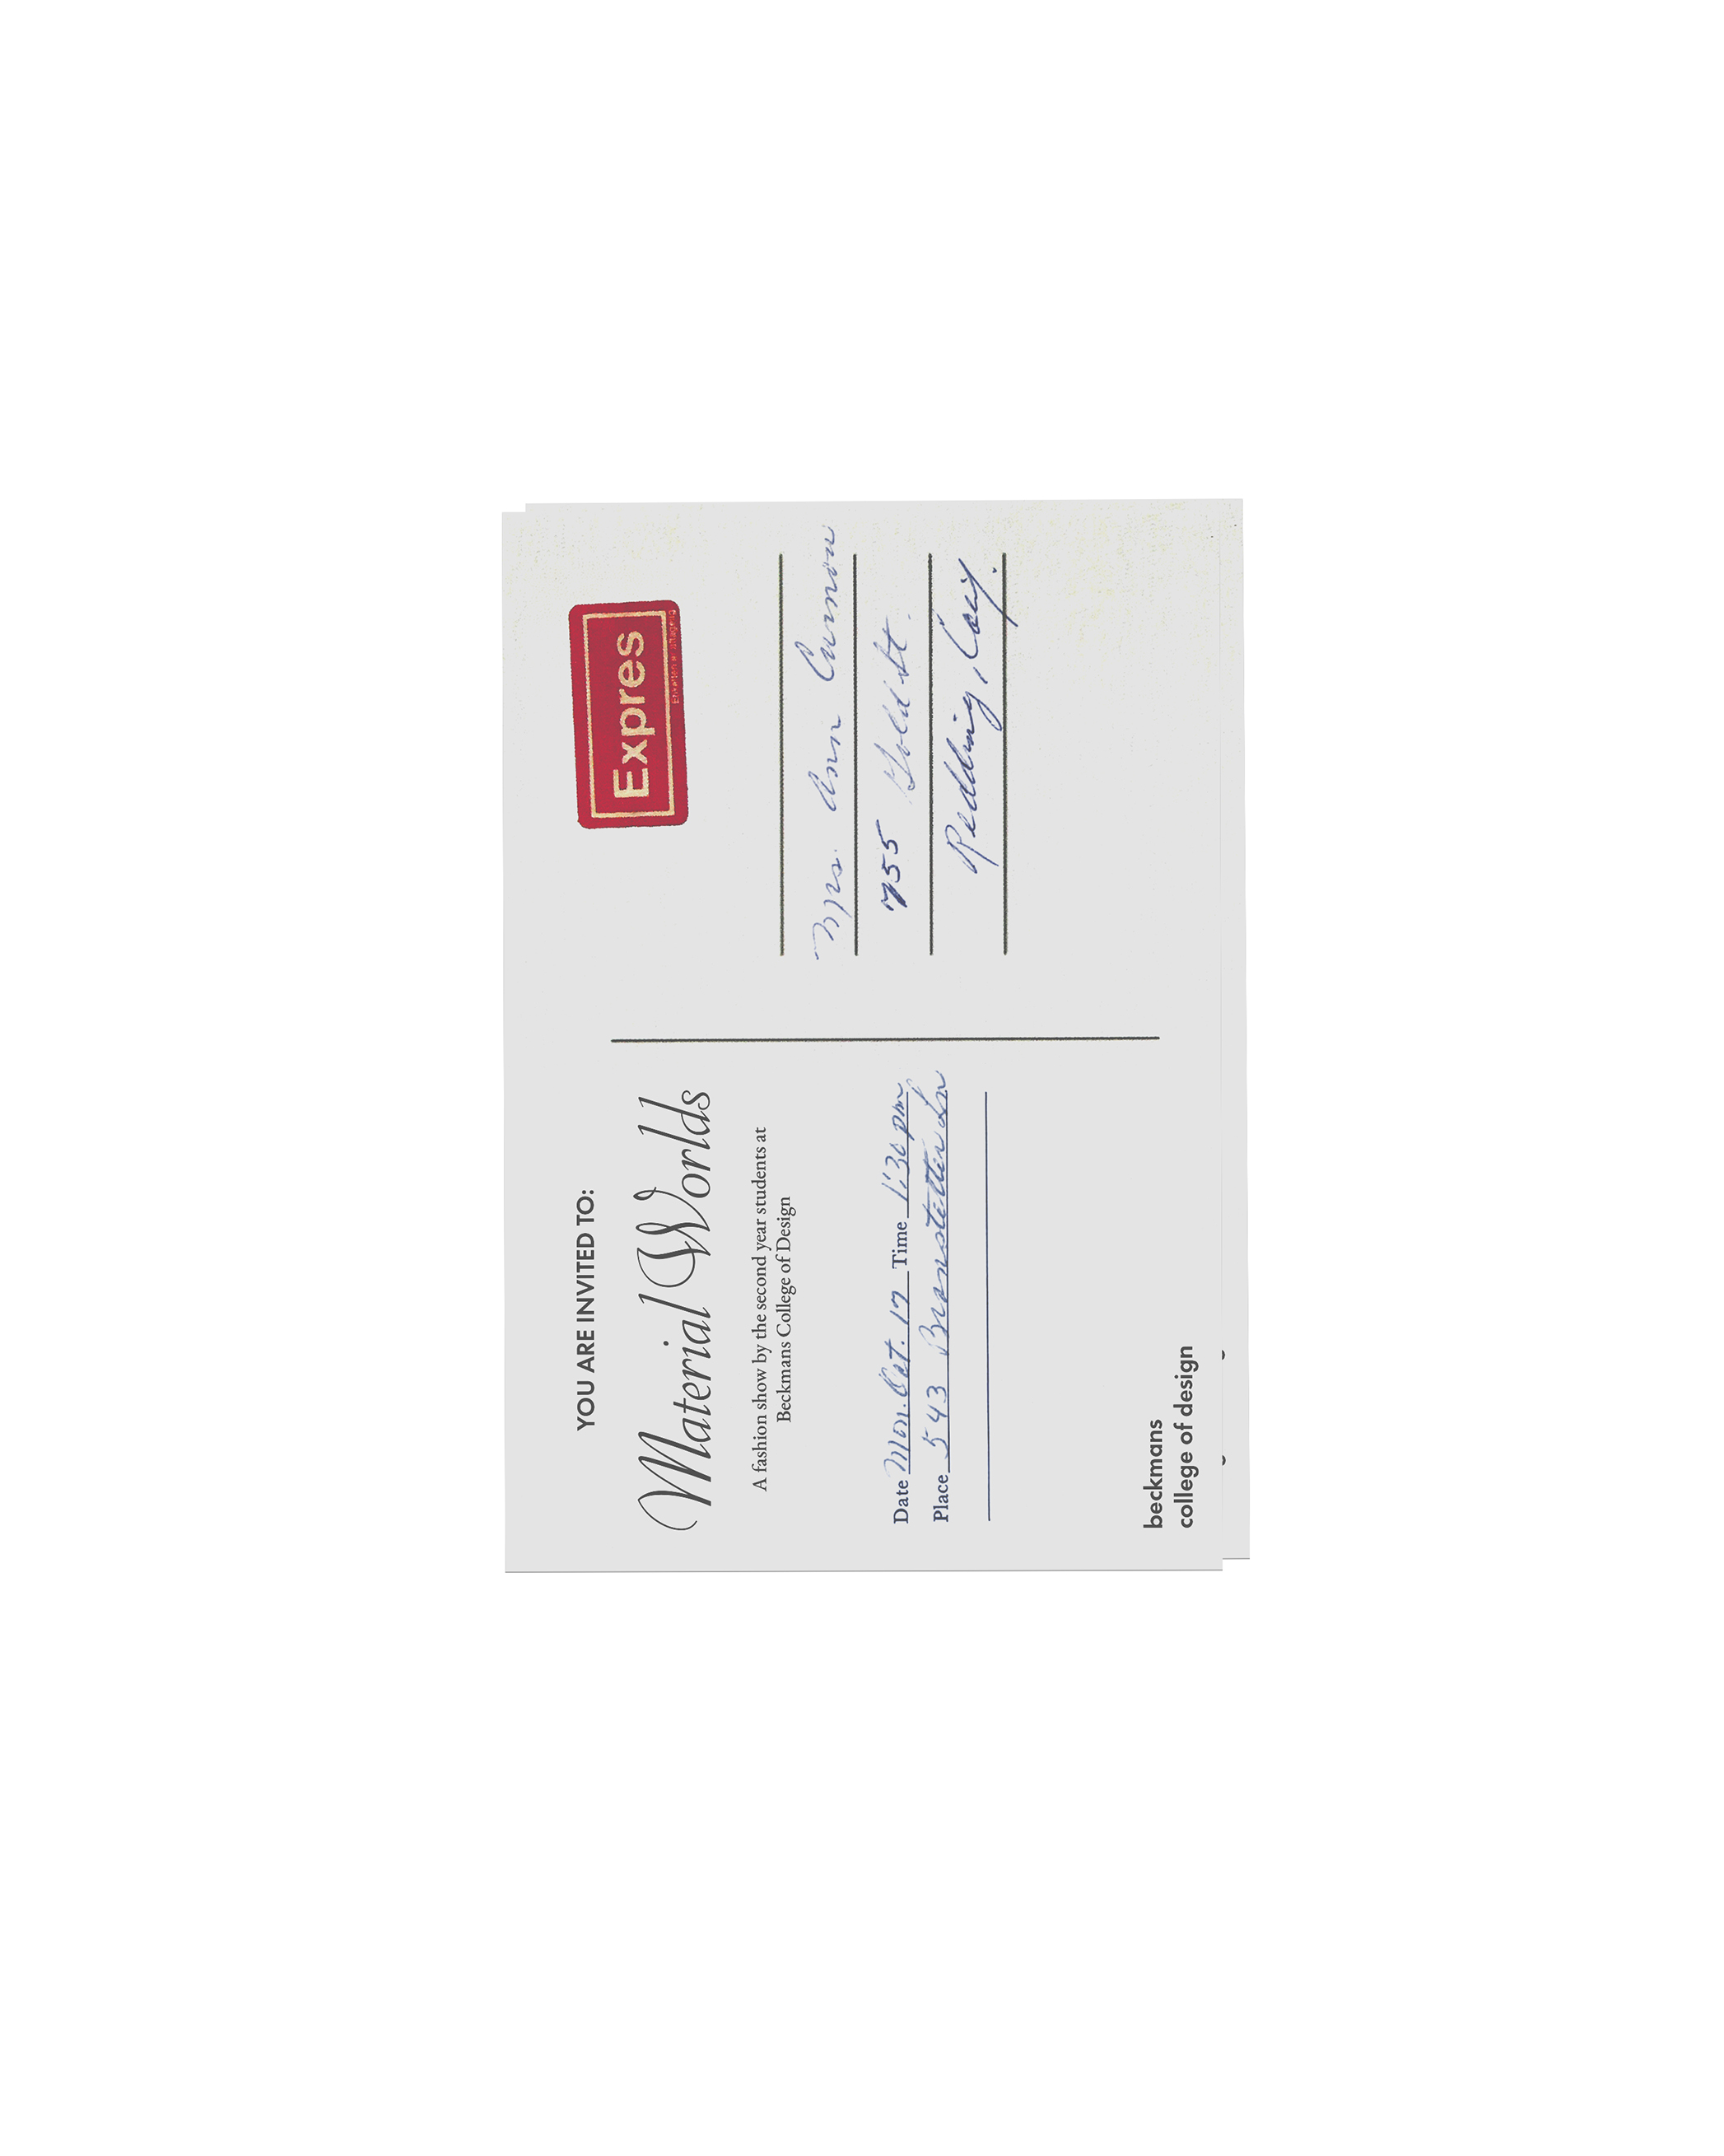 YOU ARE INVITED TO:
Material Worlds
A fashion show by the second year students at
Beckmans College of Design
Date Mon. Oct. 17 Time 1:30 pm
Place 543 Branstetter Ln
beckmans
college of design
Expres
Mrs. Ann Curnow
755 Gold St.
Redding, Calif.